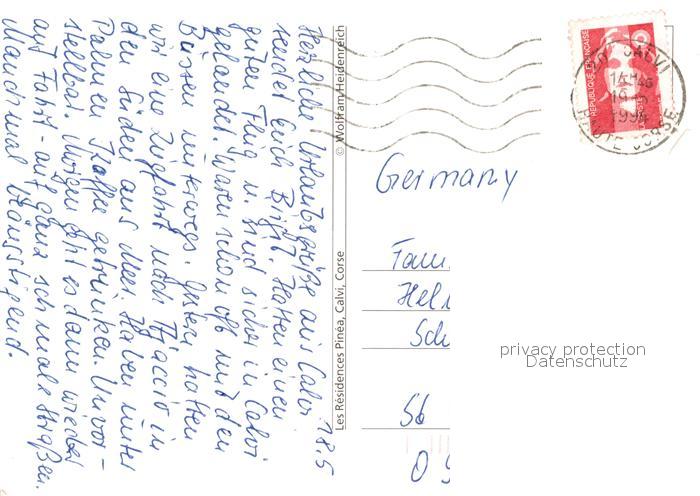 18.5
Herzliche Urlaubsgrüße aus Calvi
sendet euch Birgit. Hatten einen
guten Flug u. sind sicher in Calvi
gelandet. Waren schon oft mit den
Bussen unterwegs. Gestern hatten
wir eine Zugfahrt nach Ajaccio in
den Süden ans Meer. Haben unter
Palmen Kaffee getrunken. Unvor-
stellbar. Morgen geht es dann wieder
auf Fahrt - auf ganz schmale Straßen.
Manchmal
Les Résidences Pinéa, Calvi, Corse
© Wolfram Heidenreich
REPUBLIQUE FRANÇAISE
CALVI
1994
HAUTE CORSE
Germany
Fam.
Hel
Sch
privacy protection
Datenschutz